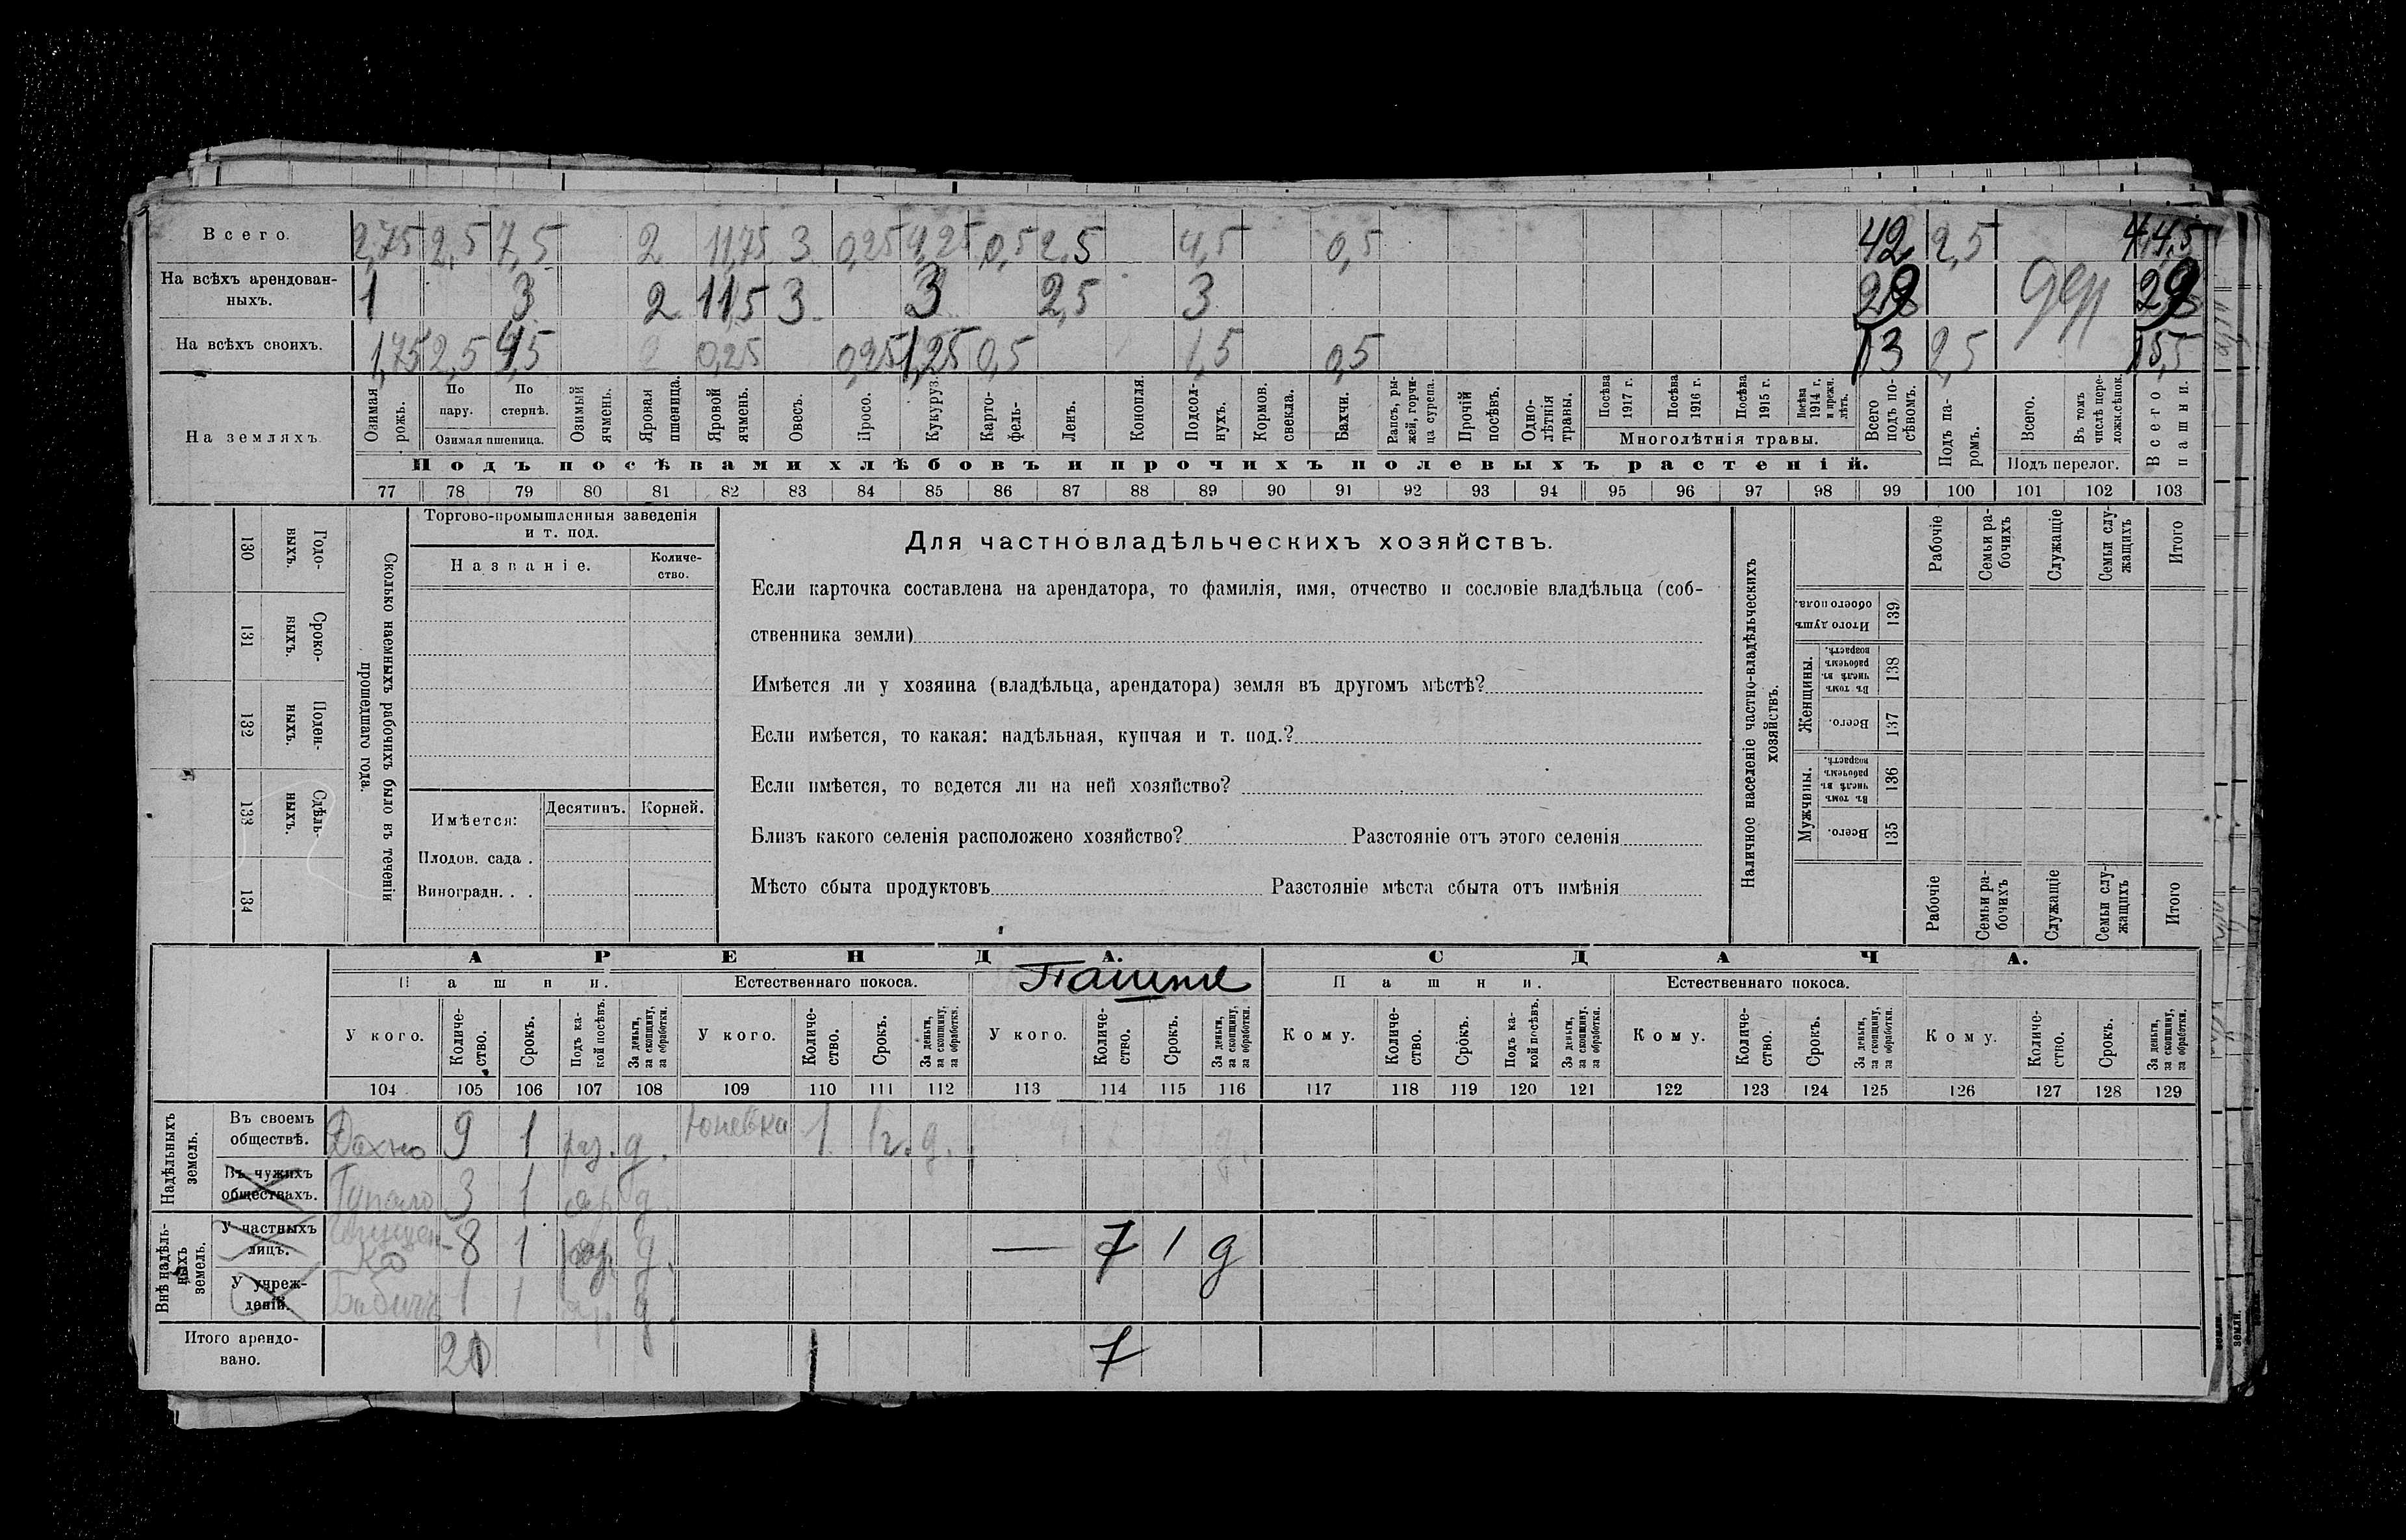 Всего. 2,75 2,5 7,5 2 11,75 3 0,25 4,25 0,5 2,5 4,5 0,5 42 2,5 44,5
На всѣхъ арендован-
ныхъ. 1 3 2 11,5 3 3 2,5 3 29 29
На всѣхъ своихъ. 1,75 2,5 4,5 0,25 0,25 1,25 0,5 1,5 0,5 13 2,5 15,5
На земляхъ.
Озимая рожь.
По пару.
По стернѣ.
Озимая пшеница.
Озимый ячмень.
Яровая пшеница.
Яровой ячмень.
Овесъ.
Просо.
Кукуруз.
Карто-
фель-
Ленъ.
Конопля.
Подсол-
нухъ.
Кормов. свекла.
Бахчи.
Рапсъ, ры-
жей, горчи-
ца сурепа.
Прочій посѣвъ.
Одно-
лѣтнія травы.
Посѣва 1917 г.
Посѣва 1916 г.
Посѣва 1915 г.
Посѣва 1914 г. и прежн. лѣтъ.
Многолѣтнія травы.
Всего подъ по-
сѣвомъ.
Подъ па-
ромъ.
Всего.
Въ томъ числѣ пере-
ложн.сѣнок.
Подъ перелог.
Всего пашни.
Подъ посѣвами хлѣбовъ и прочихъ полевыхъ растеній.
77 78 79 80 81 82 83 84 85 86 87 88 89 90 91 92 93 94 95 96 97 98 99 100 101 102 103
130 Годо-
выхъ.
131 Сроко-
выхъ.
132 Поден-
ныхъ.
133 Сдѣль-
ныхъ.
134
Сколько наемныхъ рабочихъ было въ теченіи
прошедшаго года.
Торгово-промышленныя заведенія
и т. под.
Названіе.
Количе-
ство.
Имѣется:
Десятинъ. Корней.
Плодов. сада .
Виноградн. . .
Для частновладѣльческихъ хозяйствъ.
Если карточка составлена на арендатора, то фамилія, имя, отчество и сословіе владѣльца (соб-
ственника земли)
Имѣется ли у хозяина (владѣльца, арендатора) земля въ другомъ мѣстѣ?
Если имѣется, то какая: надѣльная, купчая и т. под.?
Если имѣется, то ведется ли на ней хозяйство?
Близъ какого селенія расположено хозяйство? Разстояніе отъ этого селенія
Мѣсто сбыта продуктовъ Разстояніе мѣста сбыта отъ имѣнія
Наличное населеніе частно-владѣльческихъ
хозяйствъ.
Рабочіе
Семьи ра-
бочихъ
Служащіе
Семьи слу-
жащихъ
Итого
Итого душъ обоего пола. 139
Женщины.
Въ томъ числѣ въ рабочемъ возрастѣ. 138
Всего. 137
Мужчины.
Въ томъ числѣ въ рабочемъ возрастѣ. 136
Всего. 135
Рабочіе
Семьи ра-
бочихъ
Служащіе
Семьи слу-
жащихъ
Итого
АРЕНДА. СДАЧА.
Пашни. Естественнаго покоса. Пашни Пашни. Естественнаго покоса.
У кого. Количе-
ство. Срокъ. Подъ ка-
кой посѣвъ. За деньги, за скопщину, за обработки.
У кого. Количе-
ство. Срокъ. За деньги, за скопщину, за обработки.
У кого. Количе-
ство. Срокъ. За деньги, за скопщину, за обработки.
Кому. Количе-
ство. Срокъ. Подъ ка-
кой посѣвъ. За деньги, за скопщину, за обработки.
Кому. Количе-
ство. Срокъ. За деньги, за скопщину, за обработки.
Кому. Количе-
ство. Срокъ. За деньги, за скопщину, за обработки.
104 105 106 107 108 109 110 111 112 113 114 115 116 117 118 119 120 121 122 123 124 125 126 127 128 129
Надѣльныхъ земель.
Въ своемъ
обществѣ. Дахно 9 1 раз. д. Юневка 1 1г. д.
Въ чужихъ
обществахъ. 3 1 д.
Внѣ надѣль-
ныхъ земель.
У частныхъ
лицъ. 8 1 д. — 7 1 д
У учреж-
деній. Бабичъ 1 1 д.
Итого арендо-
вано. 21 1 7